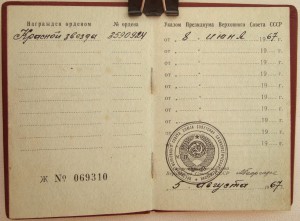 Награжден орденом № ордена
Красной звезды 3590924
Ж № 069310
Указом Президиума Верховного Совета СССР
от „ 8 “ июня 1967 г.
от „ “ 19 г.
от „ “ 19 г.
от „ “ 19 г.
от „ “ 19 г.
от „ “ 19 г.
от „ “ 19 г.
5 августа 1967 г.